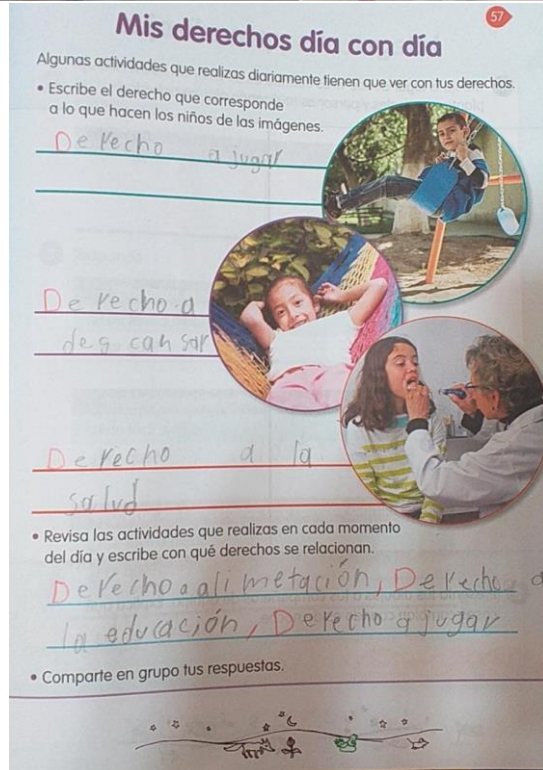 57
Mis derechos día con día
Algunas actividades que realizas diariamente tienen que ver con tus derechos.
• Escribe el derecho que corresponde
a lo que hacen los niños de las imágenes.
Derecho a jugar
Derecho a
descansar
Derecho a la
salud
• Revisa las actividades que realizas en cada momento
del día y escribe con qué derechos se relacionan.
Derecho a alimetación, Derecho a
la educación, Derecho a jugar
• Comparte en grupo tus respuestas.